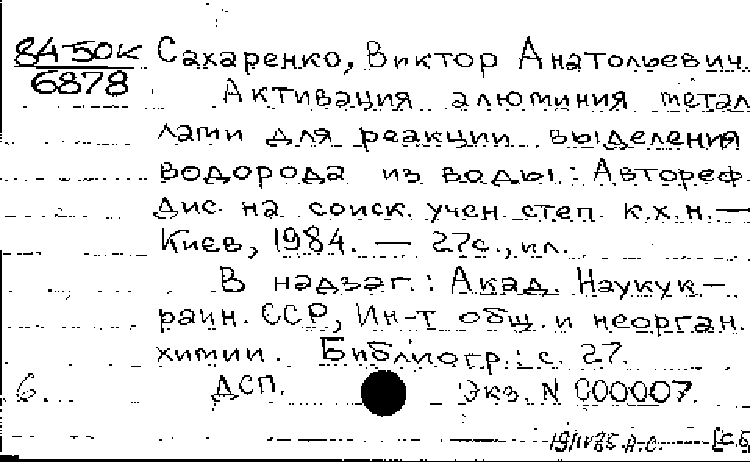 84-50к Сахаренко, Виктор Анатольевич.
6878 Активация алюминия метал
лами для реакции выделения
водорода из воды: Автореф.
дис. на соиск. учен. степ. к.х.н. —
Киев, 1984. — 27с., ил.
В надзаг.: Акад. Наук ук-
раин. ССР, Ин-т общ. и неорган.
химии. Библиогр.: с. 27.
6. ДСП. Экз. N 000007.